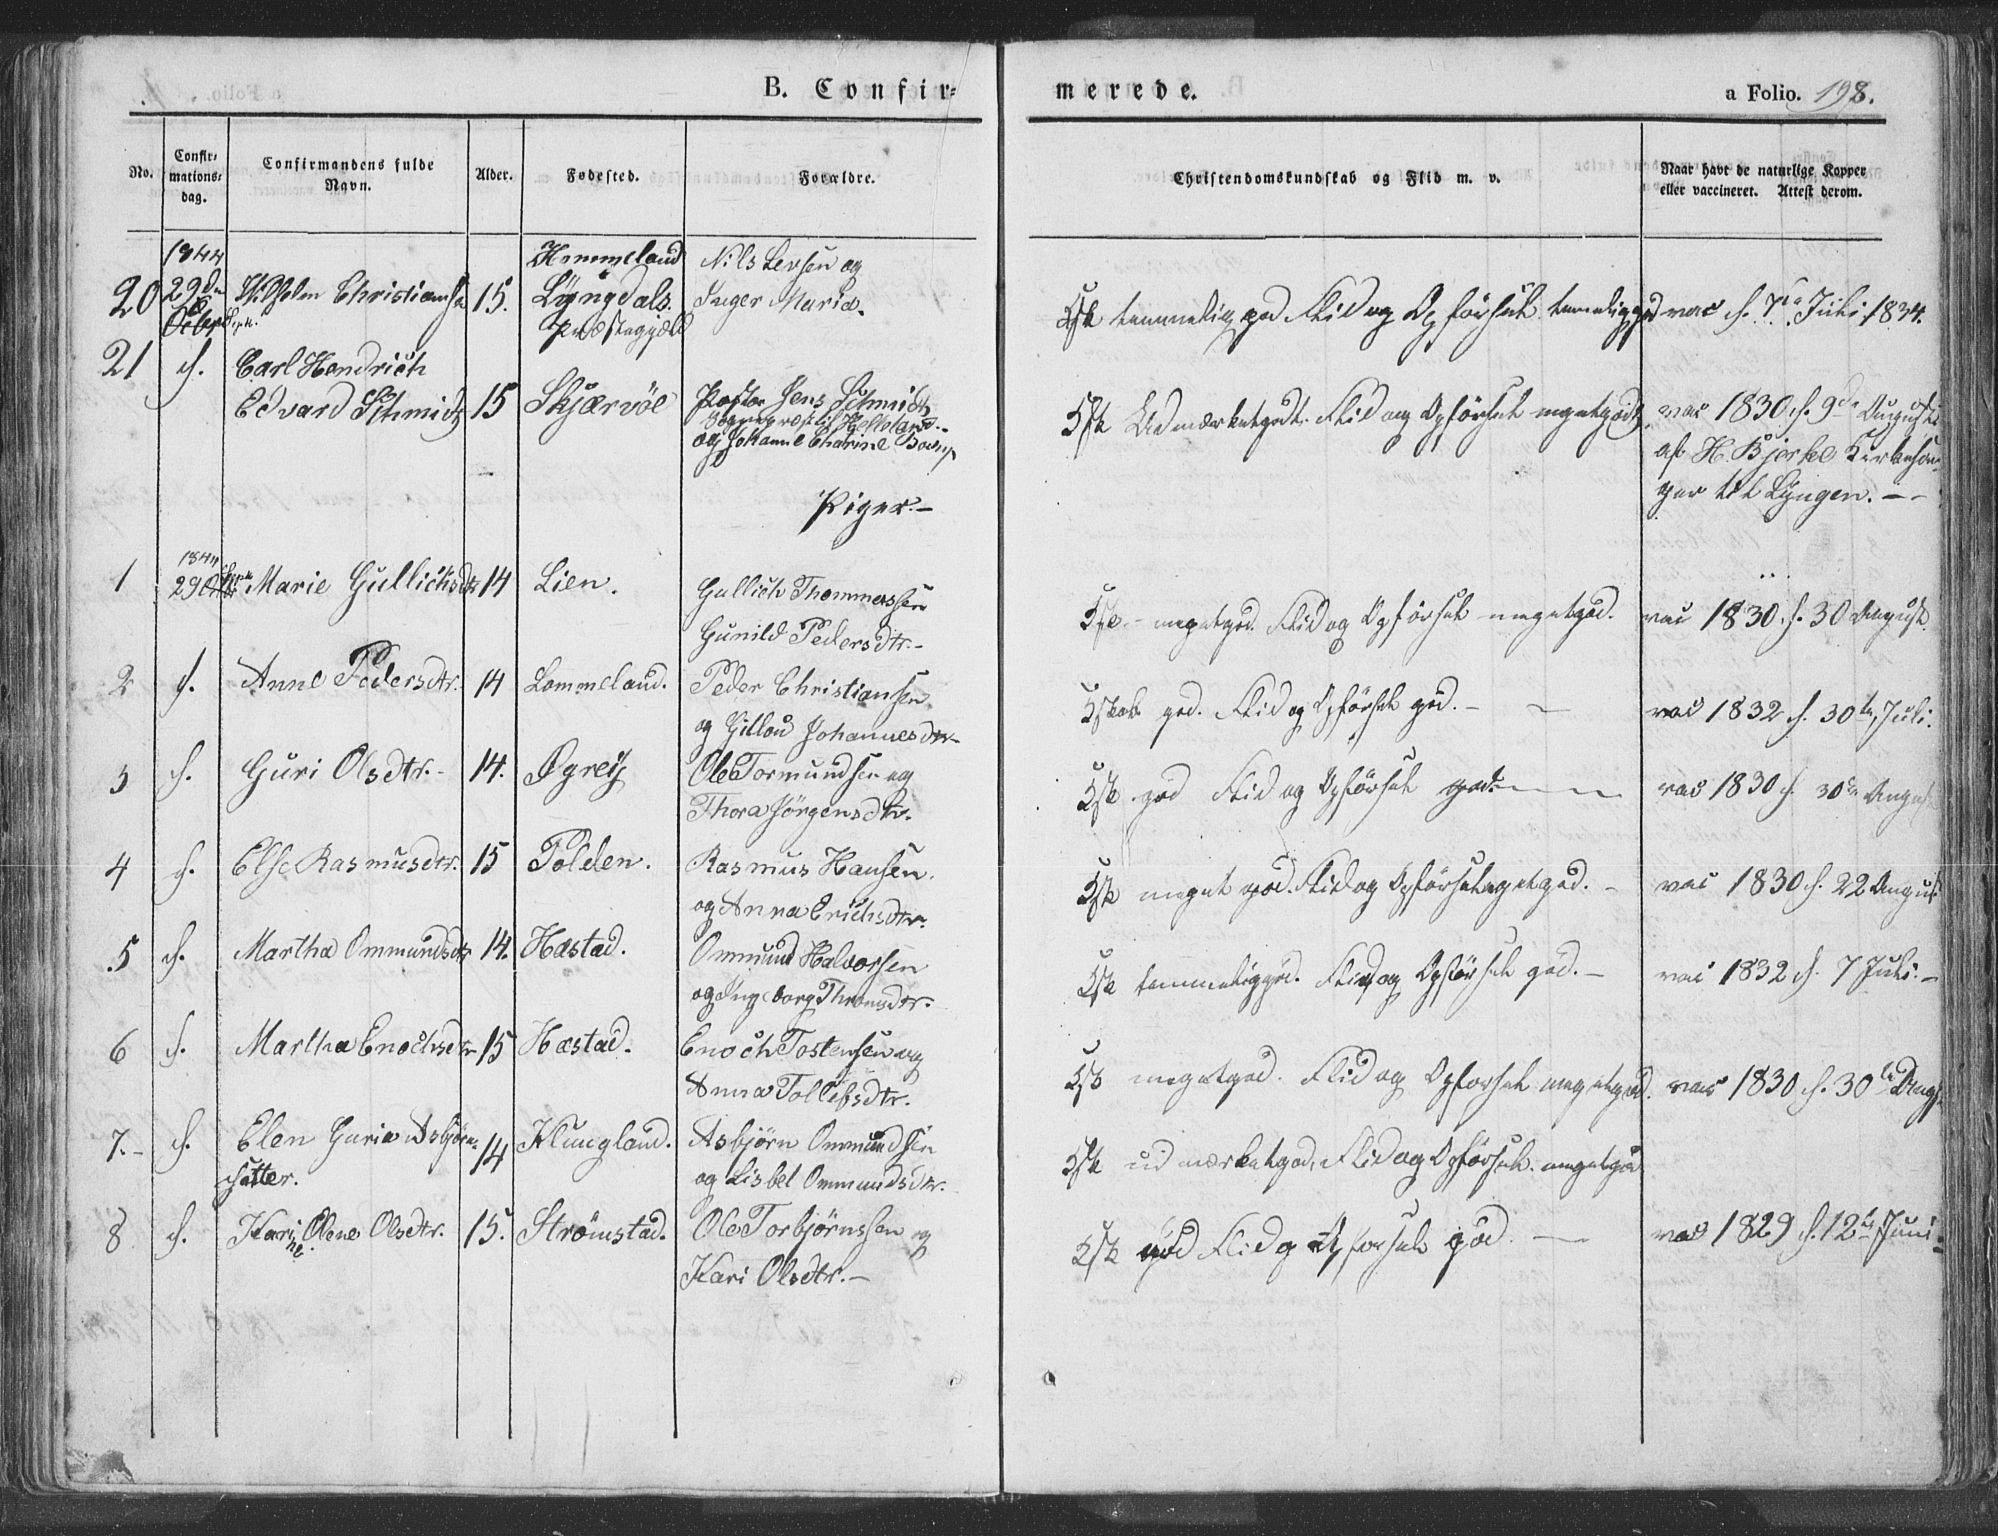 B. Confir=
merede.
a Folio. 198.
No.
Confir=
mations=
dag.
Confirmandens fulde
Navn.
Alder.
Fødested.
Forældre.
Christendomskundskab og Flid m. v.
Naar havt de naturlige Kopper
eller vaccineret. Attest derom.
1844
20 29de Vilhelm Christiansen 15. Hommeland Nils Levsen og
Lyngdals Inger Maria.
Præstegjæld
Ksk temmelig god Flid og Opførsel temelig god vac d. 7de Juli 1834.
21 d. Carl Hendrich
Edvard Schmidt 15 Skjærvöe Pastor Jens Schmidt
Sognepræst til Helleland
og Johanne Catrine
Ksk Udmærketgodt. Flid og Opførsel megetgodt vac 1830 d. 9de August
af H. Bjerke Kirkesan=
ger til Lyngen. - -
Piger.-
1844
1 29 Marie Gullichsdtr 14 Lien. Gullich Thommassen
Gunild Pedersdtr.-
Ksk.- megetgod. Flid og Opførsel megetgod. vac 1830 d. 30 August.
2 d. Anne Pedersdtr. 14 Lommeland. Peder Christiansen
og Johannesdtr
Kskab god. Flid og Opførsel god. - - vac 1832 d. 30te Juli.
3 d. Guri Olsdtr.- 14. Øgreij Ole Tormundsen og
Thora Jörgensdtr.
Ksk god Flid og Opførsel god. vac 1830 d. 30te August
4 d. Else Rasmusdtr. 15 Polden. Rasmus Hansen.
og Anna Erichsdtr.
Ksk meget god. Flid og Opførsel megetgod. - vac 1830 d. 22 August
5 d. Martha Ommundsdtr 14. Hæstad. Ommund Halvorsen
og Ingeborg Thomsdtr.
Ksk temmeliggod. Flid og Opførsel god. - vac 1832 d. 7 Juli. -
6 d. Martha Enochsdtr 15 Hæstad. Enoch Tostensen og
Anna Tollefsdtr.
Ksk megetgod. Flid og Opførsel megetgod. vac 1830 d. 30te Aug.
7.- d. Elen Guria Asbjørns
datter. 14 Klungland. Asbjörn Ommundsen
og Lisbet Ommundsdtr.
Ksk udmærketgod, Flid og Opførsel megetgod
8 d. Karine Olene Olsdtr. 15. Strömstad. Ole Torbjörnssen og
Kari Olsdtr.-
Ksk god Flid og Opførsel god. - vac 1829 d. 12te Juni.